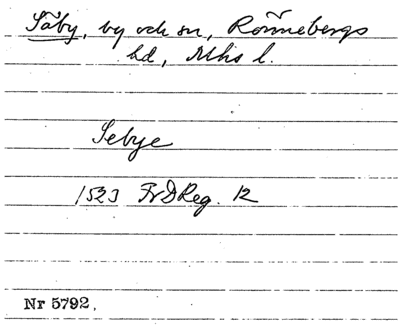 Säby, by och sn, Rönnebergs
hd, Mhs l.
Sebye
1523 FrDReg. 12
Nr 5792.